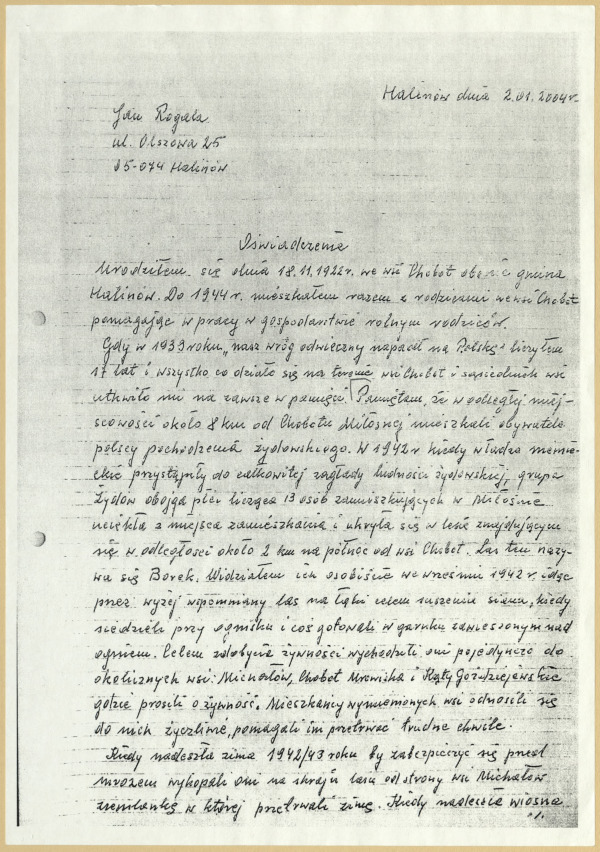 Halinów dnia 2.01.2004r.
Jan Rogala
ul. Olszowa 25
05-074 Halinów
Oświadczenie
Urodziłem się dnia 18.11.1922r. we wsi Chobot obecnie gmina
Halinów. Do 1944r. mieszkałem razem z rodzicami we wsi Chobot
pomagając w pracy w gospodarstwie rolnym rodziców.
Gdy w 1939 roku „nasz wróg odwieczny napadł na Polskę" liczyłem
17 lat i wszystko co działo się na terenie wsi Chobot i sąsiednich wsi
utkwiło mi na zawsze w pamięci. Pamiętam, że w odległej miej-
scowości około 8 km od Chobotu Miłosnej mieszkali obywatele
polscy pochodzenia żydowskiego. W 1942r kiedy władze niemie-
ckie przystąpiły do całkowitej zagłady ludności żydowskiej, grupa
Żydów obojga płci licząca 13 osób zamieszkujących w Miłośnie
uciekła z miejsca zamieszkania i ukryła się w lesie znajdującym
się w odległości około 2 km na północ od wsi Chobot. Las ten nazy-
wa się Borek. Widziałem ich osobiście we wrześniu 1942r. idąc
przez wyżej wspomniany las na łąki celem suszenia siana, kiedy
siedzieli przy ognisku i coś gotowali w garnku zawieszonym nad
ogniem. Celem zdobycia żywności wychodzili oni pojedynczo do
okolicznych wsi: Michałów, Chobot Mrowiska i Kąty Goździejewskie
gdzie prosili o żywność. Mieszkańcy wymienionych wsi odnosili się
do nich życzliwie, pomagali im przetrwać trudne chwile.
Kiedy nadeszła zima 1942/43 roku by zabezpieczyć się przed
mrozem wykopali oni na skraju lasu od strony wsi Michałów
ziemiankę w której przetrwali zimę. Kiedy nadeszła wiosna